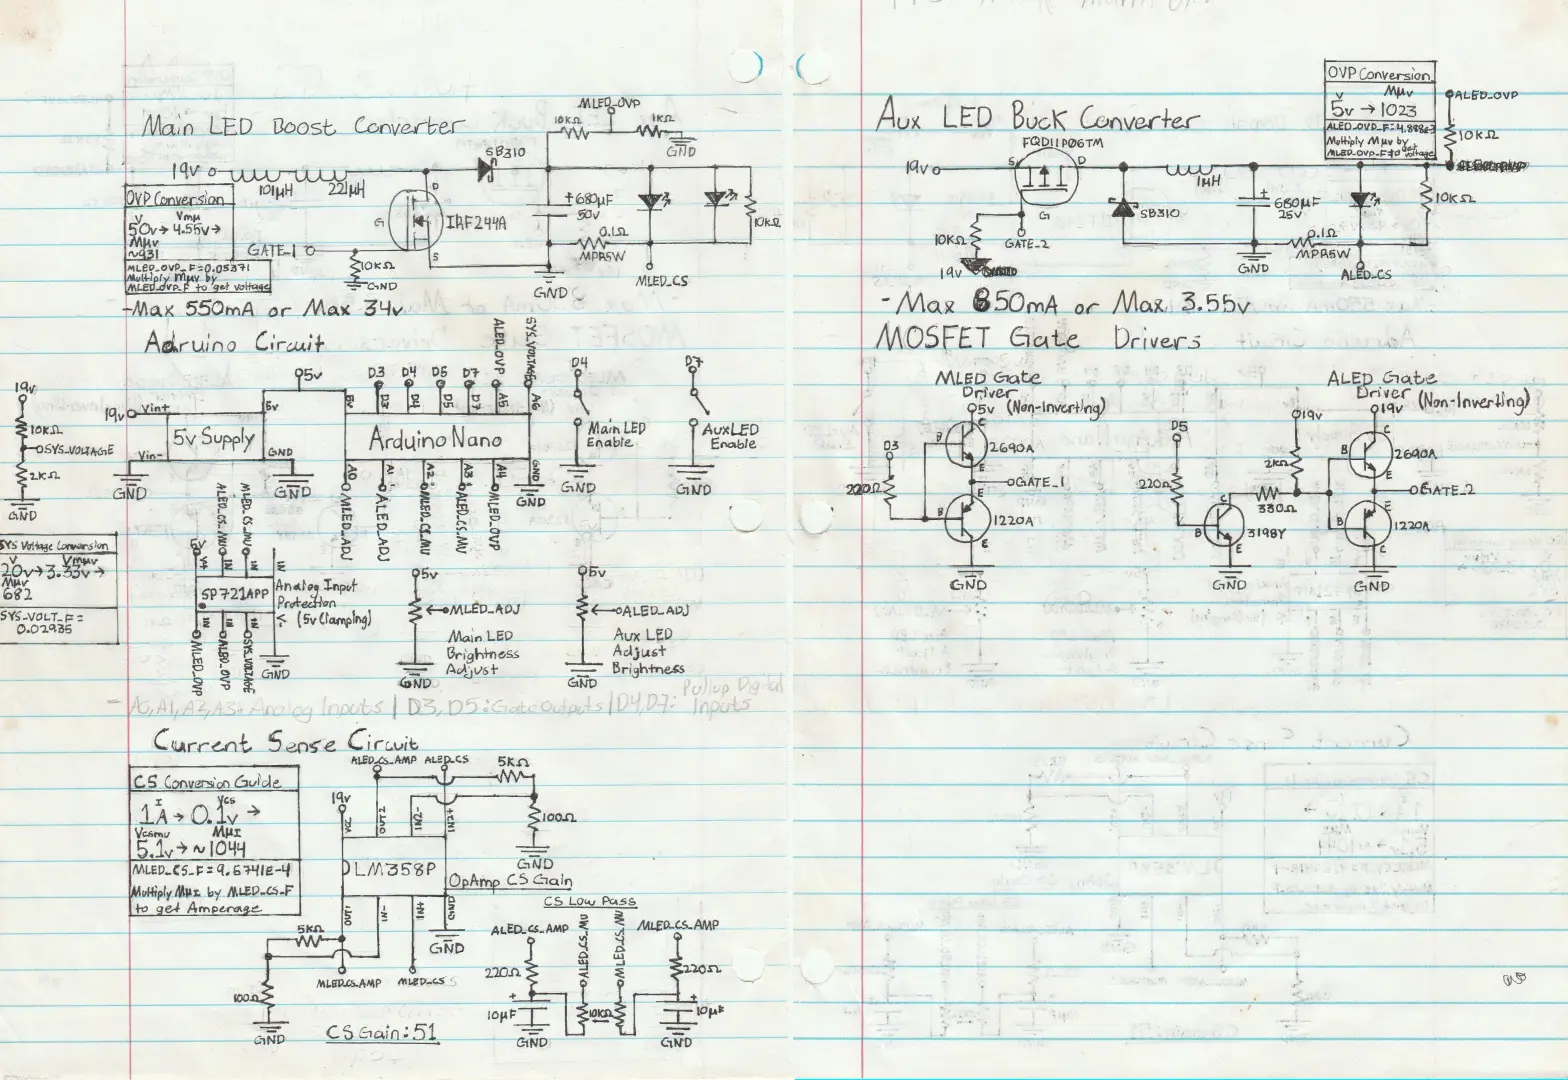 Main LED Boost Converter
MLED_OVP
10KΩ
1KΩ
GND
19v
101μH
221μH
SB310
D
G
S
IRF244A
GATE_1
10KΩ
GND
+680μF
50v
0.1Ω
MPR5W
GND
MLED_CS
10KΩ
OVP Conversion
V Vmμ
50v→4.55v→
Mμv
~931
MLED_OVP_F=0.05371
Multiply Mμv by
MLED_OVP_F to get voltage
-Max 550mA or Max 34v
Adruino Circuit
19v
10KΩ
SYS_VOLTAGE
2KΩ
GND
19v
Vin+
5v Supply
Vin-
5v
GND
GND
GND
5v
5v
D3
D4
D5
D7
ALED_OVP
SYS_VOLTAGE
D3
D4
D5
D7
A5
A6
Arduino Nano
A0
A1
A2
A3
A4
GND
MLED_ADJ
ALED_ADJ
MLED_CS_MU
ALED_CS_MU
MLED_OVP
GND
D4
Main LED
Enable
GND
D7
Aux LED
Enable
GND
SYS Voltage Conversion
V Vmμv
20v→3.33v→
Mμv
682
SYS_VOLT_F=
0.02935
ALED_CS_MU
MLED_CS_MU
5v
V+
IN
IN
IN
SP721APP
Analog Input
Protection
< (5v Clamping)
IN
IN
IN
V-
MLED_OVP
ALED_OVP
SYS_VOLTAGE
GND
5v
MLED_ADJ
Main LED
Brightness
Adjust
GND
5v
ALED_ADJ
Aux LED
Adjust
Brightness
GND
- A0,A1,A2,A3: Analog Inputs | D3, D5: Gate Outputs | D4,D7: Pullup Digital
Inputs
Current Sense Circuit
CS Conversion Guide
I Vcs
1A→0.1v→
Vcsmu MμI
5.1v→~1044
MLED_CS_F=9.6741E-4
Multiply MμI by MLED_CS_F
to get Amperage
ALED_CS_AMP
ALED_CS
5KΩ
19v
VCC
OUT2
IN2-
IN2+
100Ω
GND
LM358P
OpAmp CS Gain
OUT
IN-
IN+
GND
GND
5KΩ
100Ω
GND
MLED_CS_AMP
MLED_CS
CS Gain: 51
CS Low Pass
ALED_CS_AMP
ALED_CS_MU
MLED_CS_MU
MLED_CS_AMP
220Ω
220Ω
10μF
10KΩ
10μF
GND
GND
Aux LED Buck Converter
FQD11P06TM
19v
S
D
G
10KΩ
19v
GATE_2
SB310
1μH
680μF
25v
GND
0.1Ω
MPR5W
ALED_CS
10KΩ
ALED_OVP
10KΩ
OVP Conversion
V Mμv
5v→1023
ALED_OVP_F=4.888E-3
Multiply Mμv by
MLED_OVP_F to get voltage
-Max 850mA or Max 3.55v
MOSFET Gate Drivers
MLED Gate
Driver
5v (Non-Inverting)
D3
220Ω
B
C
2690A
E
GATE_1
B
E
1220A
C
GND
ALED Gate
Driver (Non-Inverting)
19v
19v
D5
220Ω
2KΩ
330Ω
B
C
3198Y
E
GND
B
C
2690A
E
GATE_2
B
E
1220A
C
GND